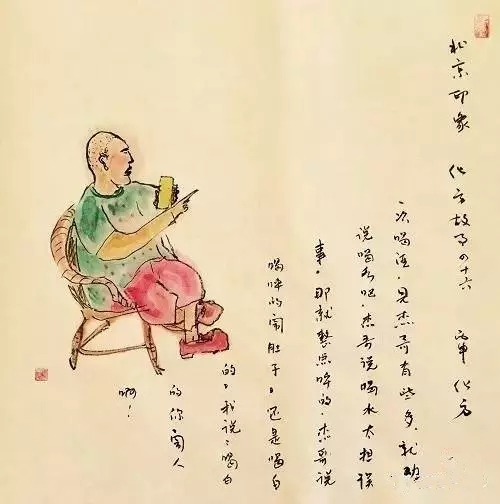 北京印象 化方故事四十六 丙申 化方
一次喝酒,见杰哥有些多,就劝
说喝水吧,杰哥说喝水太耽误
事,那就整点啤的,杰哥说
喝啤的闹肚子,还是喝白
的,我说:喝白
的你闹人
啊!